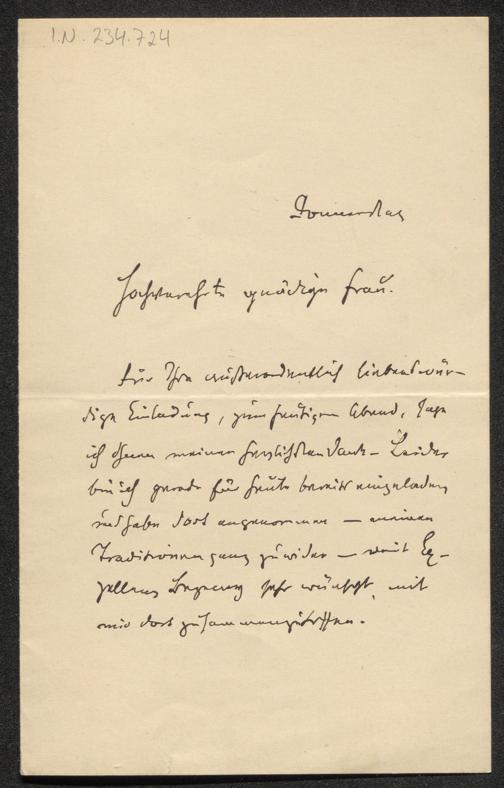 I.N. 234.724
Donnerstag
Hochverehrte gnädige Frau.
Für Ihre außerordentlich liebenswür-
dige Einladung, zum heutigen Abend, sage
ich Ihnen meinen herzlichsten Dank. Leider
bin ich gerade für heute bereits eingeladen
und habe dort angenommen — meinen
Traditionen ganz zuwider — weil Ex-
zellenz sehr wünscht, mit
mir dort zusammenzutreffen.